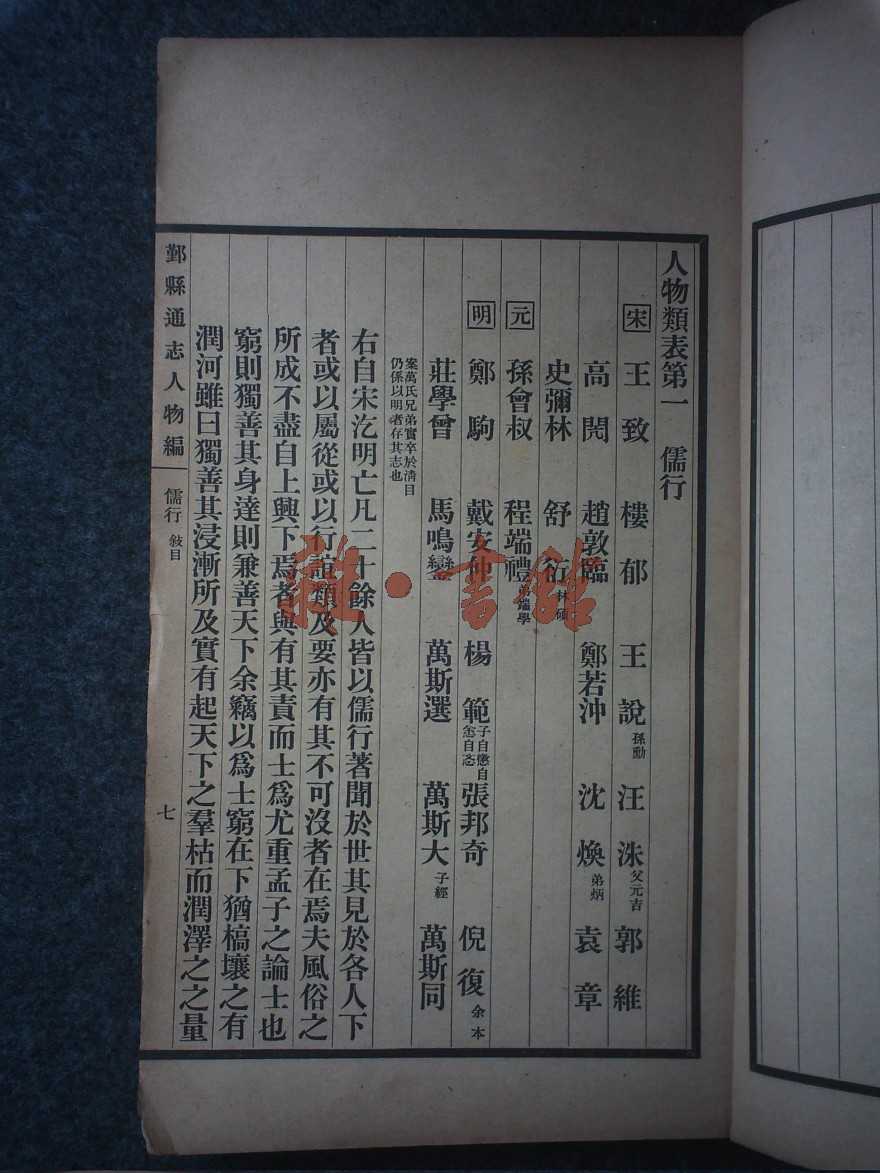 人物類表第一 儒行
宋 王致 樓郁 王說 孫勳 汪洙 父元吉 郭維
高閌 趙敦臨 鄭若沖 沈煥 弟炳 袁章
史彌林 舒衍 林碩
元 孫會叔 程端禮 弟端學
明 鄭駒 戴安仲 楊範 子自懲自 張邦奇 倪復 余本
莊學曾 馬鳴鑾 萬斯選 萬斯大 子經 萬斯同
案萬氏兄弟實卒於淸目
仍係以明者存其志也
右自宋迄明亡凡二十餘人皆以儒行著聞於世其見於各人下
者或以屬從或以行誼類及要亦有其不可沒者在焉夫風俗之
所成不盡自上興下焉者與有其責而士爲尤重孟子之論士也
窮則獨善其身達則兼善天下余竊以爲士窮在下猶槁壤之有
潤河雖曰獨善其浸漸所及實有起天下之羣枯而潤澤之之量
鄞縣通志人物編 儒行 敍目
七
雜·書館